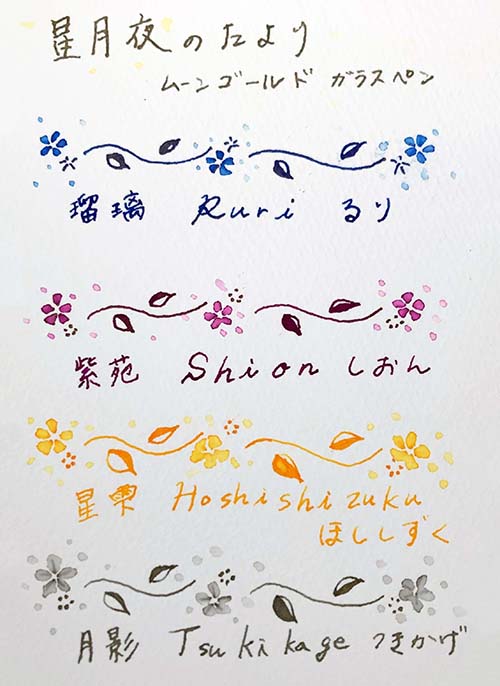 星月夜のたより
ムーンゴールド ガラスペン
瑠璃 Ruri るり
紫苑 Shion しおん
星雫 Hoshishizuku
ほししずく
月影 Tsukikage つきかげ